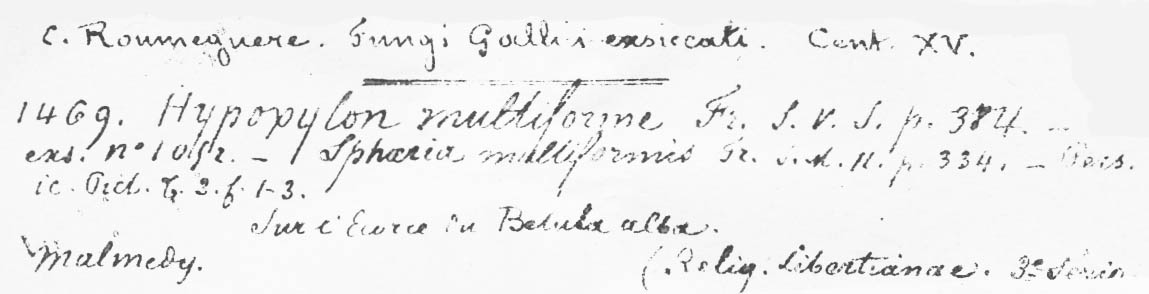 C. Roumeguere. Fungi Gallici exsiccati. Cent. XV.
1469. Hypopylon multiforme Fr. S. V. S. p. 384. —
exs. no 1052. — Sphaeria multiformis Fr. S. M. II. p. 334. — Pers.
ic. Pict. T. 3. f. 1-3.
Sur l'Ecorce du Betula alba.
Malmedy. (Reliq. Libertianae. 3e Série